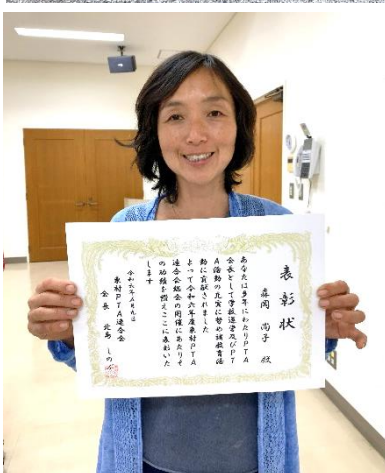 表彰状
森岡 尚子 殿
あなたは多年にわたりPTA
会長として学校運営及びPT
A活動の充実に努め諸教育活
動に貢献されました
よって令和六年度東村PTA
連合会総会の開催にあたりそ
の功績を讃えここに表彰いた
します
令和六年
東村PTA連合会
会長 北島 しの